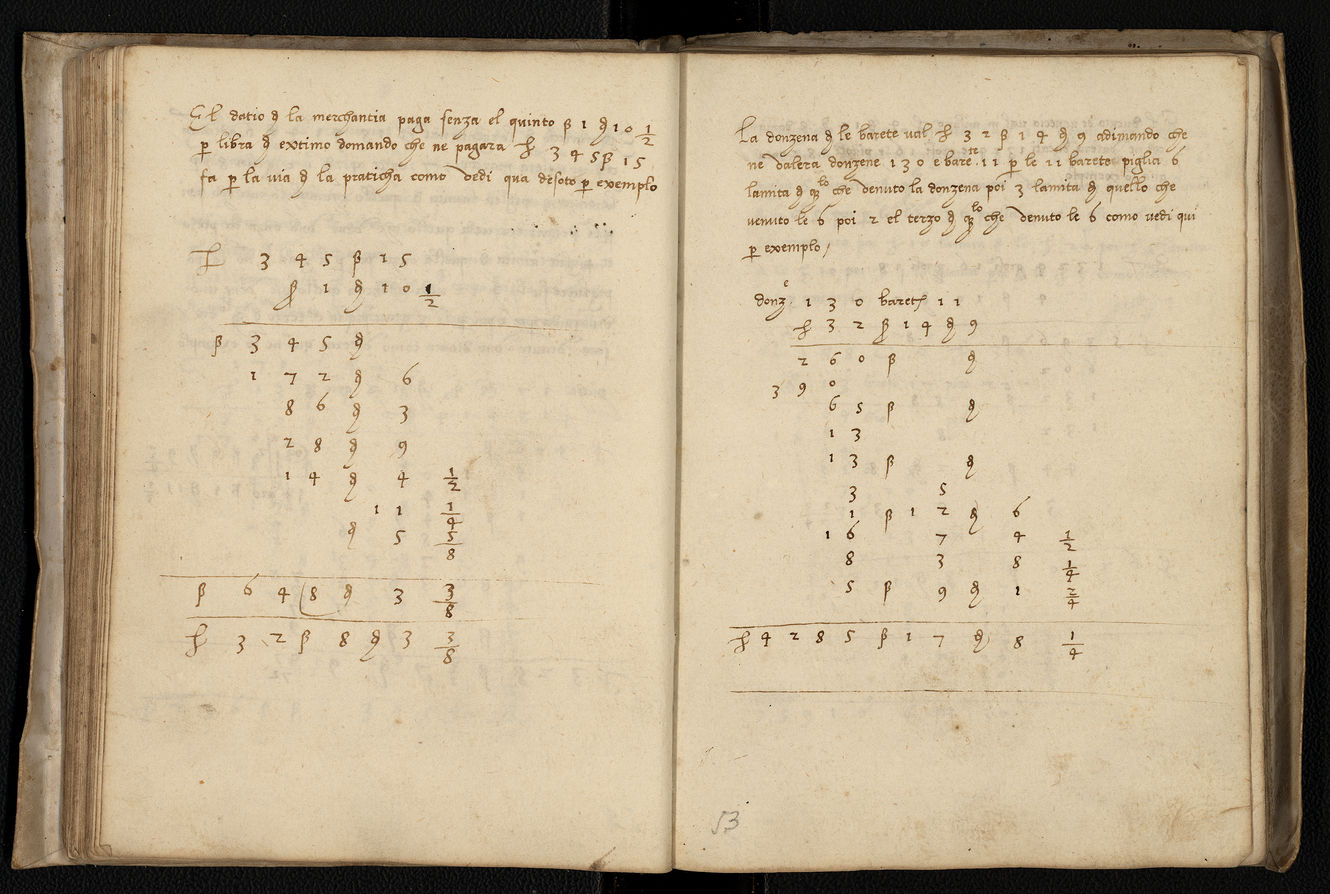 El datio d la merchantia paga senza el quinto ß 1 d 10 1/2
p libra d extimo domando che ne pagara L 345 ß 15
fa p la via d la praticha como vedi qua desoto p exemplo
L 3 4 5 ß 1 5
ß 1 d 1 0 1/2
ß 3 4 5 d
1 7 2 d 6
8 6 d 3
2 8 d 9
1 4 d 4 1/2
1 1 1/4
d 5 5/8
ß 6 4 8 d 3 3/8
L 3 2 ß 8 d 3 3/8
La donzena d le barete val L 3 2 ß 1 4 d 9 adimando che
ne valera donzene 1 3 0 e bare.te 11 p le 11 barete piglia 6
lamita d qlo che venuto la donzena poi 3 lamita d quello che
venuto le 6 poi 2 el terzo d qlo che venuto le 6 como vedi qui
p exemplo /
donz.e 1 3 0 barete 1 1
L 3 2 ß 1 4 d 9
2 6 0 ß d
3 9 0
6 5 ß d
1 3
1 3 ß d
3 5
1 ß 1 2 d 6
1 6 7 4 1/2
8 3 8 1/4
5 ß 9 d 1 2/4
L 4 2 8 5 ß 1 7 d 8 1/4
53